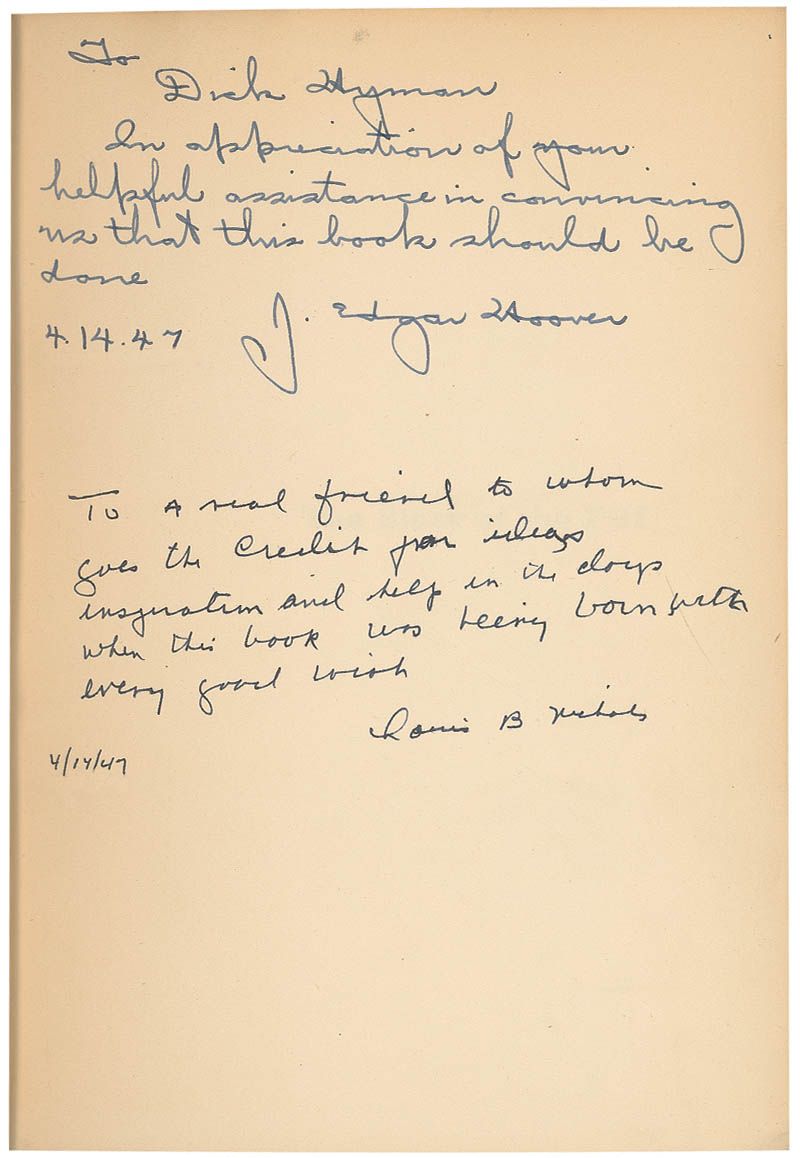 To
Dick Hyman
In appreciation of your
helpful assistance in convincing
us that this book should be
done
4.14.47 J. Edgar Hoover
To a real friend to whom
goes the credit for ideas
inspiration and help in the days
when this book was being born with
every good wish
Louis B Nichols
4/14/47